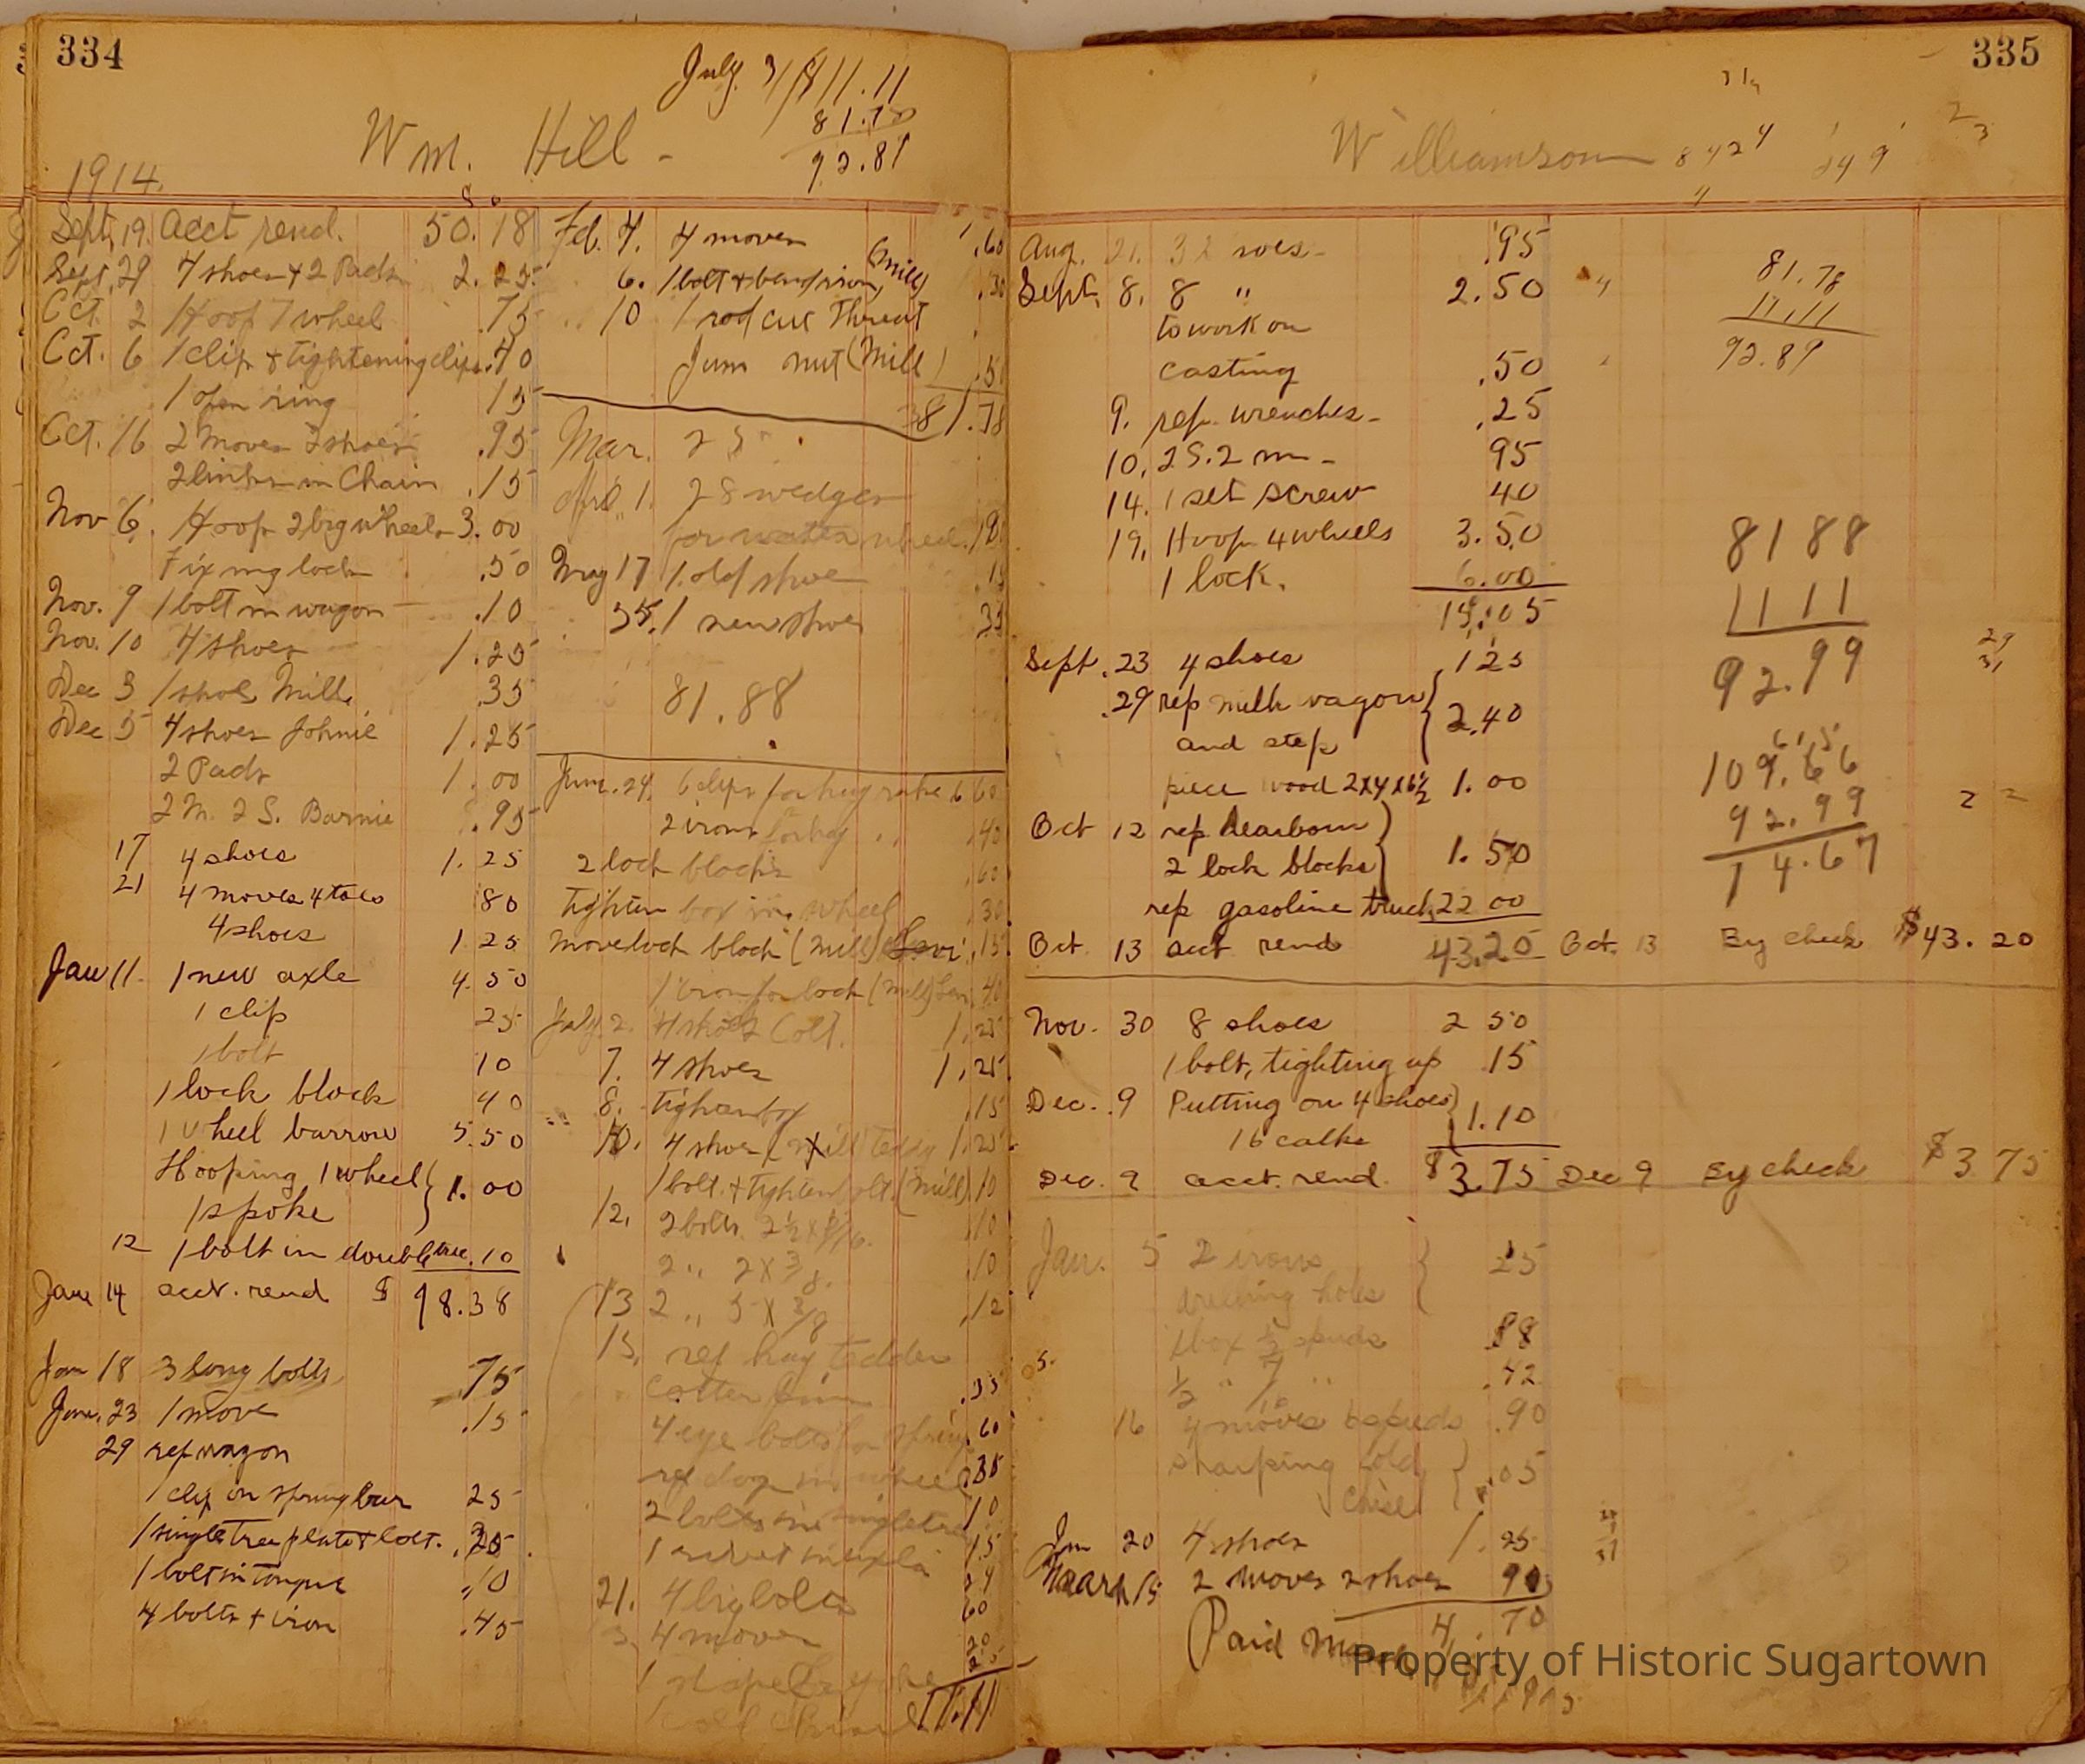 334
July 31 $11.11
81.78
92.89
Wm. Hill -
1914.
Sept. 19. Acct rend. 50.18
Sept. 29 4 shoes & 2 Pads 2.25
Oct. 2 Hoop 1 wheel .75
Oct. 6 1 clip & tightening clips .40
1 open ring 15
Oct. 16 2 Moves 2 shoes .95
2 links in Chain .15
Nov 6. Hoop 2 big wheels 3.00
Fixing lock .50
Nov. 9 1 bolt in wagon .10
Nov. 10 4 shoes 1.25
Dec 3 1 shoe Mill .35
Dec 5 4 shoes Johnie 1.25
2 Pads 1.00
2 M. 2 S. Barnie .95
17 4 shoes 1.25
21 4 moves 4 toes 80
4 shoes 1 25
Jan 11. 1 new axle 4.50
1 clip 25
1 bolt 10
1 lock block 40
1 wheel barrow 5.50
Hooping 1 wheel 1.00
1 spoke
12 1 bolt in doubletree .10
Jan 14 acct. rend $ 98.38
Jan 18 3 long bolts .75
Jan. 23 1 move .15
29 rep wagon
1 clip on spring bar 25
1 singletree plate & bolt.
1 bolt in tongue .10
4 bolts & iron .45
Feb. 4. 4 moves .60
6. 1 bolt & (Mill) .30
10 1 rod cut thread
nut (Mill)
81.78
Mar. 25
1. 28 wedges
for water wheel
May 17 1 old shoe .15
25. 1 new shoe 35
81.88
June 24. 6 clips for hay rake 60
2 irons for hay " .40
2 lock blocks .60
Tighten box in wheel .30
Move lock block (Mill) .15
1 iron for lock (Mill) 40
July 2. 4 shoes Colt. 1.25
7. 4 shoes 1.25
8. tighten box .15
10. 4 shoes Teddy 1.25
1 bolt & tighten bolt (Mill) 10
12. 2 bolts 10
2 " 2 x 3/8. .10
13 2 " 5 x 3/8 .12
15. rep hay tedder
.35
4 eye bolts for .60
rep dog in wheel .35
2 bolts in singletree 10
1 rivet in 15
21. 4 big bolts
4 moves
11.11
335
Williamson
Aug. 21. .95
Sept. 8. 8 " 2.50
to work on
casting .50
9. rep. wrenches - .25
10. 2 S. 2 m - 95
14. 1 set screw 40
19. Hoop 4 wheels 3.50
1 lock. 6.00
15.05
Sept. 23 4 shoes 1 25
29 rep milk wagon 2.40
and step
piece wood 2x4x6½ 1.00
Oct 12 rep dearborn
2 lock blocks 1.50
rep gasoline truck 22 00
Oct. 13 acct rend 43.20 Oct. 13 By check $43.20
Nov. 30 8 shoes 2 50
1 bolt, tighting up .15
Dec. 9 Putting on 4 shoes 1.10
16 calks
Dec. 9 acct. rend. $3.75 Dec 9 By check $3 75
Jan. 5 2 irons 25
holes
88
½ " .42
16 4 moves .90
sharping cold .05
chisel
Jan 20 4 shoes 1.25
March 15 2 moves 2 shoes 90
4.70
Paid
81.78
11.11
92.89
8188
1111
92.99
109.66
92.99
14.67
Property of Historic Sugartown